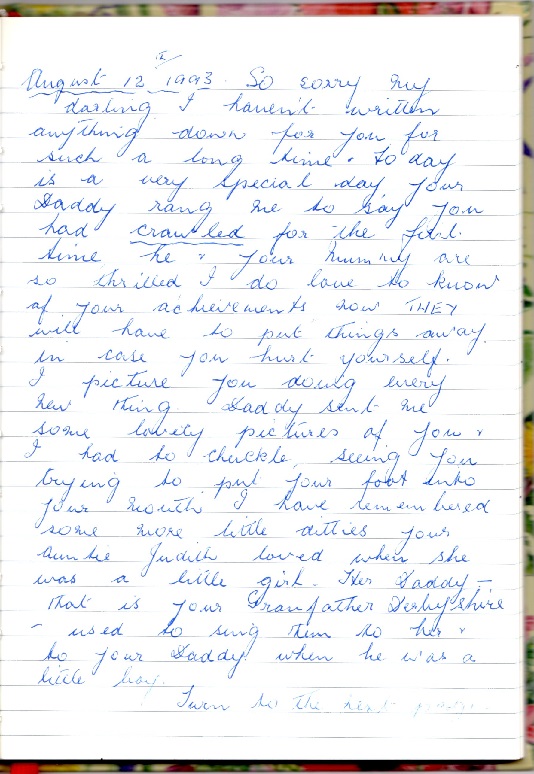 August 12th 1993. So sorry my
darling I haven't written
anything down for you for
such a long time. Today
is a very special day your
Daddy rang me to say you
had crawled for the first
time he & your mummy are
so thrilled I do love to know
of your achievements now THEY
will have to put things away
in case you hurt yourself.
I picture you doing every
new thing Daddy sent me
some lovely pictures of you &
I had to chuckle seeing you
trying to put your foot into
your mouth I have remembered
some more little ditties your
Auntie Judith loved when she
was a little girl. Her Daddy -
that is your Granfather Derbyshire
- used to sing them to her &
to your Daddy when he was a
little boy.
Turn to the next page.